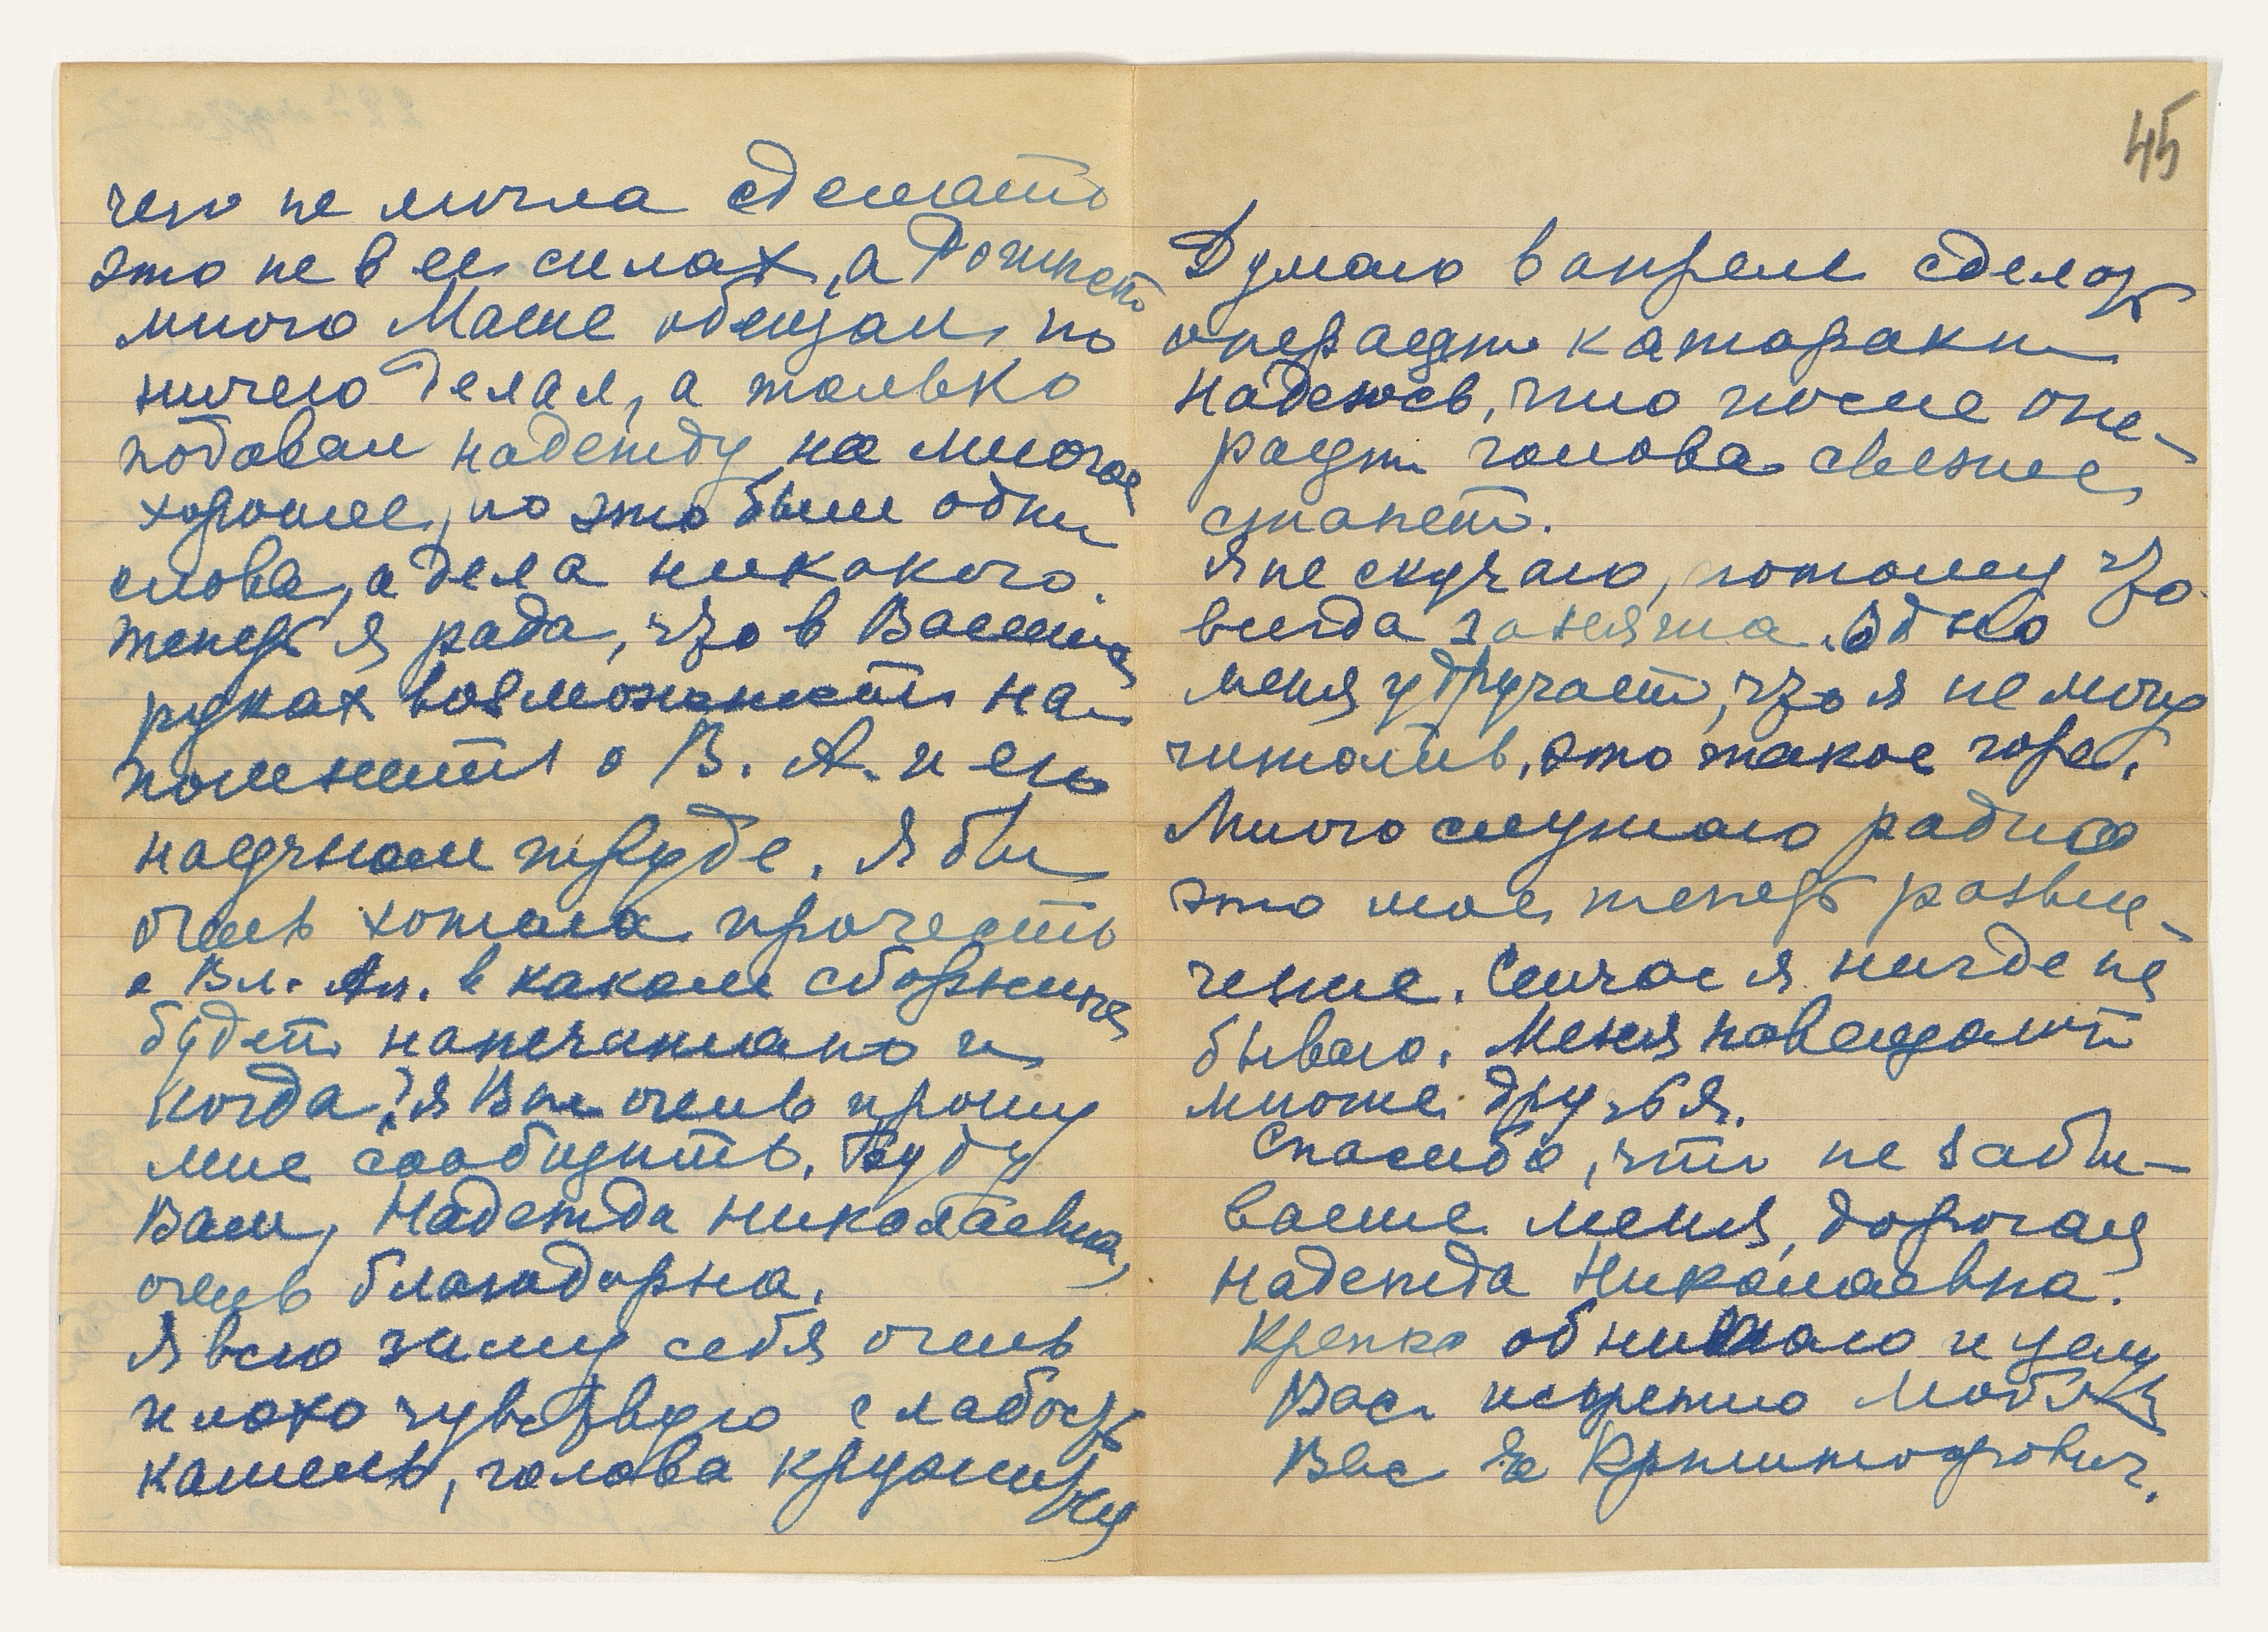 чего не могла сделать
это не в ее силах, а
много Маше обещал, но
ничего делал, а только
подавал надежду на многое
хорошее, но это были одни
слова, а дела никакого.
теперь я рада, что в Ваших
руках возможность на-
помнить о В. А. и его
научном труде. Я бы
очень хотела прочесть
о Вл. Ал. в каком сборнике
будет напечатано и
когда? я Вас очень прошу
мне сообщить. Буду
Вам, Надежда Николаевна,
очень благодарна.
Я всю зиму себя очень
плохо чувствую слабость
кашель, голова кружится
45
Думаю в апреле сделать
операцию катаракты
Надеюсь, что после опе-
рации голова свежее
станет.
Я не скучаю, потому что
всегда занята. Одно
меня удручает, что я не могу
читать, это такое горе.
Много слушаю радио
это мое теперь развле-
чение. Сейчас я нигде не
бываю. Меня навещают
многие друзья.
Спасибо, что не забы-
ваете меня, дорогая
Надежда Николаевна.
Крепко обнимаю и целую
Вас. искренно любящая
Вас